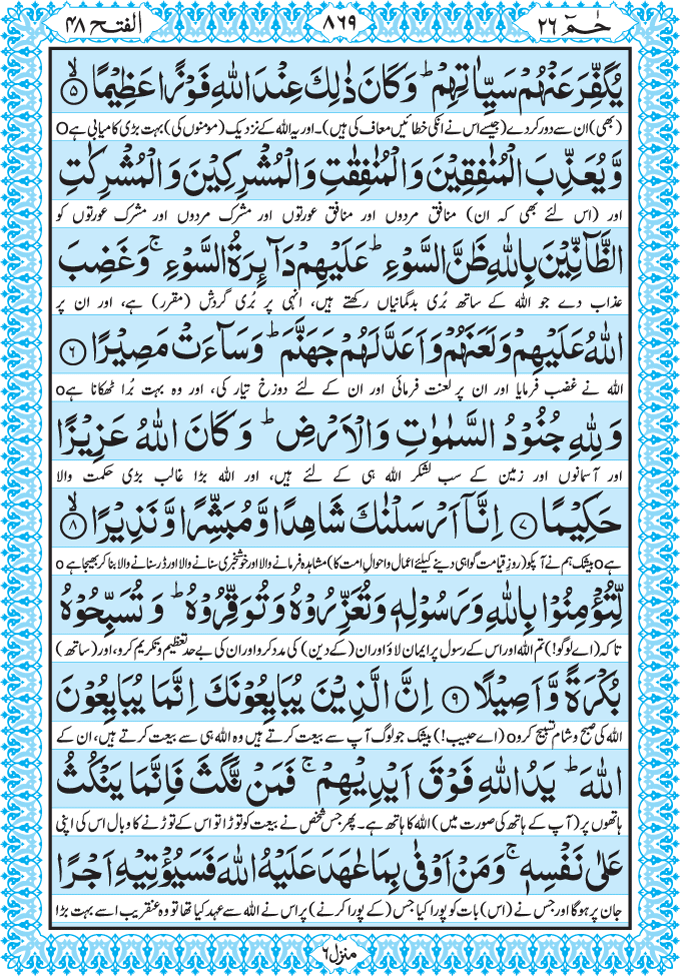 الفتح ۴۸
۸۶۹
حٰمٓ ۲۶
يُكَفِّرَ عَنْهُمْ سَيِّاٰتِهِمْ ؕ وَ كَانَ ذٰلِكَ عِنْدَ اللّٰهِ فَوْزًا عَظِيْمًا ۙ﴿۵﴾
(بھی) ان سے دور کر دے (جیسے اس نے انکی خطائیں معاف کی ہیں)۔ اور یہ اللہ کے نزدیک (مومنوں کی) بہت بڑی کامیابی ہے o
وَّ يُعَذِّبَ الْمُنٰفِقِيْنَ وَ الْمُنٰفِقٰتِ وَ الْمُشْرِكِيْنَ وَ الْمُشْرِكٰتِ
اور (اس لئے بھی کہ ان) منافق مردوں اور منافق عورتوں اور مشرک مردوں اور مشرک عورتوں کو
الظَّآنِّيْنَ بِاللّٰهِ ظَنَّ السَّوْءِ ؕ عَلَيْهِمْ دَآىِٕرَةُ السَّوْءِ ۚ وَ غَضِبَ
عذاب دے جو اللہ کے ساتھ بُری بدگمانیاں رکھتے ہیں، انہی پر بُری گردش (مقرر) ہے، اور ان پر
اللّٰهُ عَلَيْهِمْ وَ لَعَنَهُمْ وَ اَعَدَّ لَهُمْ جَهَنَّمَ ؕ وَ سَآءَتْ مَصِيْرًا ﴿۶﴾
اللہ نے غضب فرمایا اور ان پر لعنت فرمائی اور ان کے لئے دوزخ تیار کی، اور وہ بہت بُرا ٹھکانا ہے o
وَ لِلّٰهِ جُنُوْدُ السَّمٰوٰتِ وَ الْاَرْضِ ؕ وَ كَانَ اللّٰهُ عَزِيْزًا
اور آسمانوں اور زمین کے سب لشکر اللہ ہی کے لئے ہیں، اور اللہ بڑا غالب بڑی حکمت والا
حَكِيْمًا ﴿۷﴾ اِنَّاۤ اَرْسَلْنٰكَ شَاهِدًا وَّ مُبَشِّرًا وَّ نَذِيْرًا ۙ﴿۸﴾
ہے o بیشک ہم نے آپکو (روزِ قیامت گواہی دینے کیلئے اعمال و احوالِ امت کا) مشاہدہ فرمانے والا اور خوشخبری سنانے والا اور ڈر سنانے والا بنا کر بھیجا ہے o
لِّتُؤْمِنُوْا بِاللّٰهِ وَ رَسُوْلِهٖ وَ تُعَزِّرُوْهُ وَ تُوَقِّرُوْهُ ؕ وَ تُسَبِّحُوْهُ
تاکہ (اے لوگو!) تم اللہ اور اس کے رسول پر ایمان لاؤ اور ان (کے دین) کی مدد کرو اور ان کی بے حد تعظیم و تکریم کرو، اور (ساتھ)
بُكْرَةً وَّ اَصِيْلًا ﴿۹﴾ اِنَّ الَّذِيْنَ يُبَايِعُوْنَكَ اِنَّمَا يُبَايِعُوْنَ
اللہ کی صبح و شام تسبیح کرو o (اے حبیب!) بیشک جو لوگ آپ سے بیعت کرتے ہیں وہ اللہ ہی سے بیعت کرتے ہیں، ان کے
اللّٰهَ ؕ يَدُ اللّٰهِ فَوْقَ اَيْدِيْهِمْ ۚ فَمَنْ نَّكَثَ فَاِنَّمَا يَنْكُثُ
ہاتھوں پر (آپ کے ہاتھ کی صورت میں) اللہ کا ہاتھ ہے۔ پھر جس شخص نے بیعت کو توڑا تو اس کے توڑنے کا وبال اس کی اپنی
عَلٰى نَفْسِهٖ ۚ وَ مَنْ اَوْفٰى بِمَا عٰهَدَ عَلَيْهُ اللّٰهَ فَسَيُؤْتِيْهِ اَجْرًا
جان پر ہوگا اور جس نے (اس) بات کو پورا کیا جس (کے پورا کرنے) پر اس نے اللہ سے عہد کیا تھا تو وہ عنقریب اسے بہت بڑا
منزل ۶